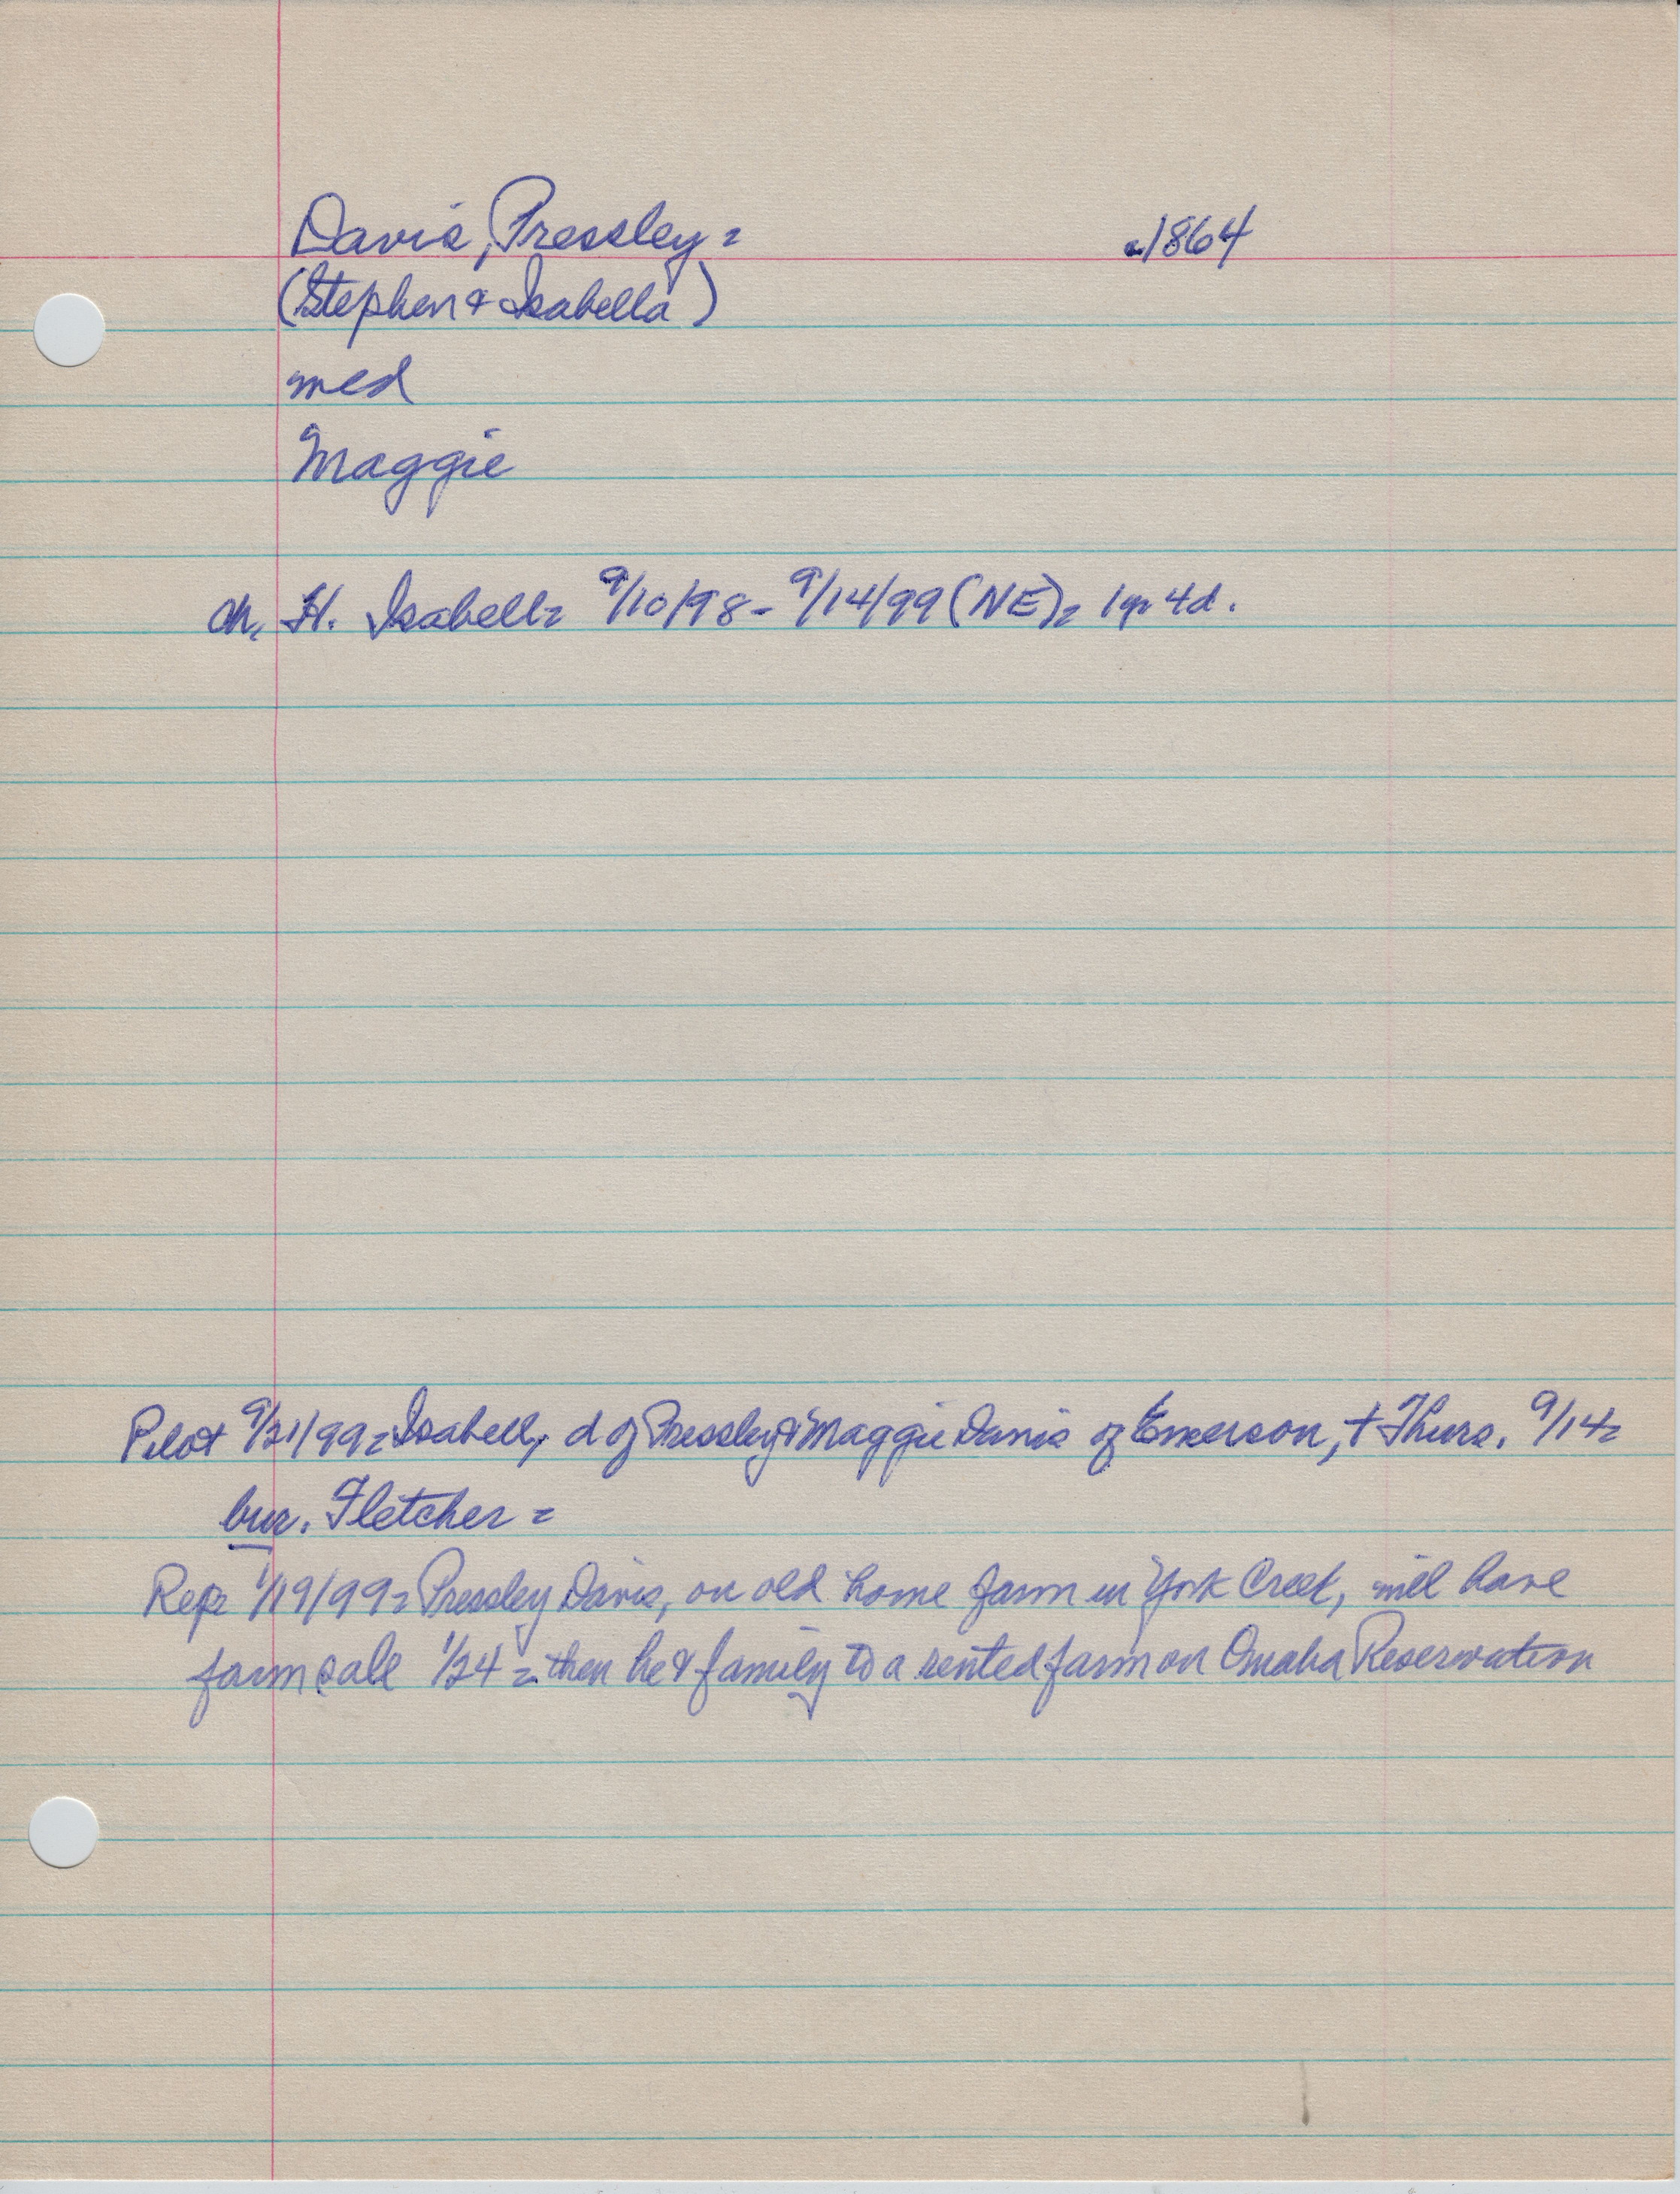 Davis, Pressley = c.1864
(Stephen & Isabella)
med
Maggie
ch. H. Isabell = 9/10/98 - 9/14/99 (NE) = 1yr 4d.
Pilot 9/21/99 = Isabell, d of Pressley & Maggie Davis of Emerson, † Thurs. 9/14 =
bur. Fletcher =
Rep = 1/19/99 = Pressley Davis, on old home farm in York Creek, will have
farm sale 1/24 = then he & family to a rented farm on Omaha Reservation